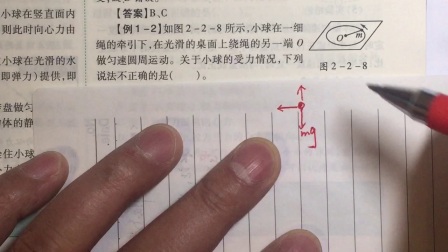 小球在竖直面内
则此时向心力由
在光滑的水
即弹力)提供,即
【答案】B、C
【例1-2】如图2-2-8所示,小球在一细
绳的牵引下,在光滑的桌面上绕绳的另一端O
做匀速圆周运动。关于小球的受力情况,下列
说法不正确的是( )。
O m
图2-2-8
盘做匀
体的静
住小球
mg